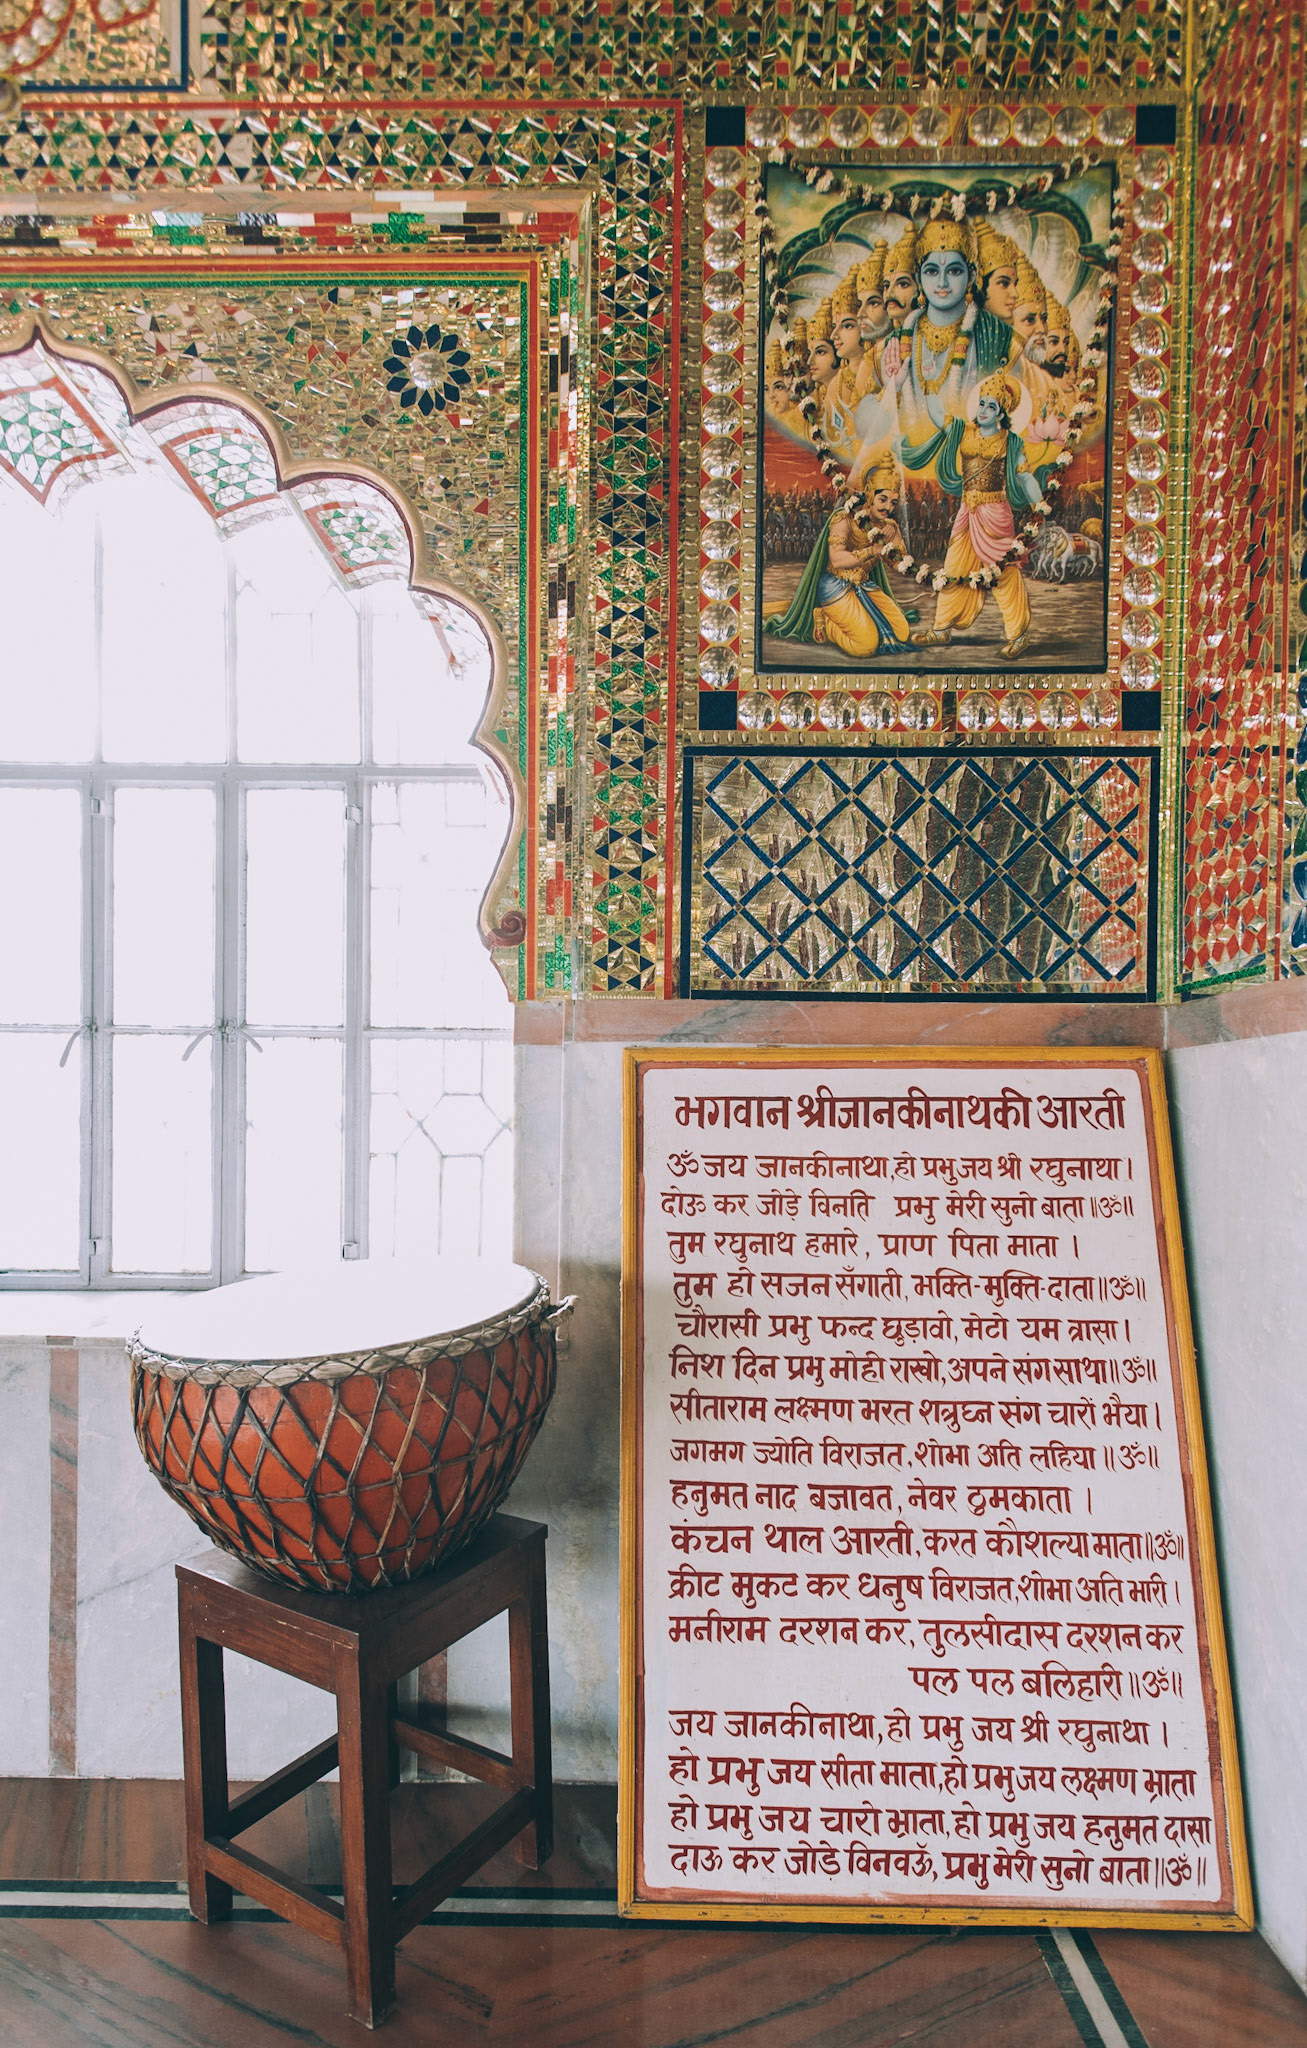 भगवान श्रीजानकीनाथकी आरती
ॐ जय जानकीनाथा,हो प्रभु जय श्री रघुनाथा।
दोऊ कर जोड़े विनति प्रभु मेरी सुनो बाता॥ॐ॥
तुम रघुनाथ हमारे, प्राण पिता माता ।
तुम हो सजन सँगाती, भक्ति-मुक्ति-दाता॥ॐ॥
चौरासी प्रभु फन्द छुड़ावो, मेटो यम त्रासा।
निश दिन प्रभु मोही राखो,अपने संग साथा॥ॐ॥
सीताराम लक्ष्मण भरत शत्रुघ्न संग चारों भैया।
जगमग ज्योति विराजत,शोभा अति लहिया॥ॐ॥
हनुमत नाद बजावत, नेवर ठुमकाता ।
कंचन थाल आरती, करत कौशल्या माता॥ॐ॥
क्रीट मुकट कर धनुष विराजत,शोभा अति भारी।
मनीराम दरशन कर, तुलसीदास दरशन कर
पल पल बलिहारी॥ॐ॥
जय जानकीनाथा,हो प्रभु जय श्री रघुनाथा ।
हो प्रभु जय सीता माता,हो प्रभु जय लक्ष्मण भ्राता
हो प्रभु जय चारो भ्राता,हो प्रभु जय हनुमत दासा
दाऊ कर जोड़े विनवऊँ, प्रभु मेरी सुनो बाता॥ॐ॥